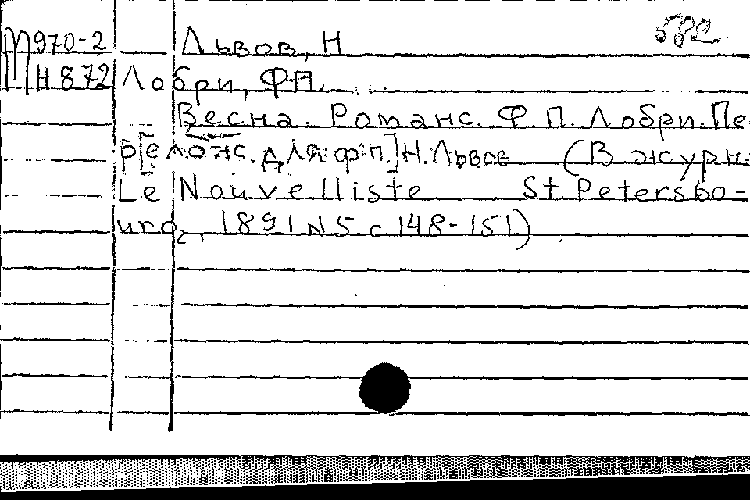 582
М970-2 Львов, Н
Н872 Лобри, ФП.
Весна. Романс. Ф П. Лобри. Пе-
р[елож. для ф-п.] Н. Львов (В журн.
Le Nouvelliste St Petersbo-
urg, 1891 N5 с 148-151)